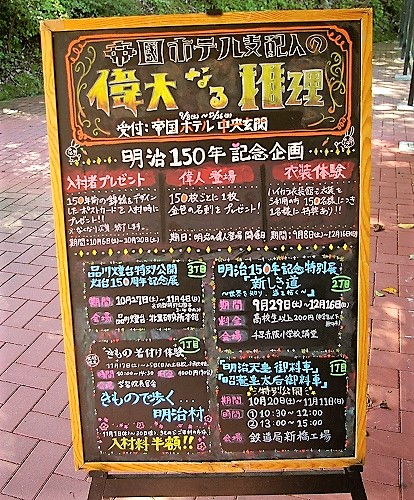 帝国ホテル支配人の
偉大なる推理
受付：帝国ホテル中央玄関
明治150年記念企画
入村者プレゼント
150年前の錦絵をデザイン
したポストカードを入村時に
プレゼント!!
※なくなり次第、終了します。
偉人登場
150枚ごとに1枚
金色の名刺をプレゼント!
衣装体験
ハイカラ衣装館で衣装を
ご利用の方150名様につき
1名様に特典あり!!
期間：9月8日(土)～12月16日(日)
品川燈台特別公開
灯台150周年記念展
3丁目
期間 10月27日(土)～11月4日(日)
明治150年記念特別展
「新しき道」
2丁目
期間 9月29日(土)～12月16日(日)
料金 高校生以上200円
会場 千早赤阪小学校講堂
きもの着付け体験
1丁目
きもので歩く…
明治村
入村料半額!!
「明治天皇御料車」
「昭憲皇太后御料車」
1丁目
特別公開
期間 10月20日(土)～11月11日(日)
時間 ①10:30～12:00
②13:00～15:00
会場 鉄道局新橋工場